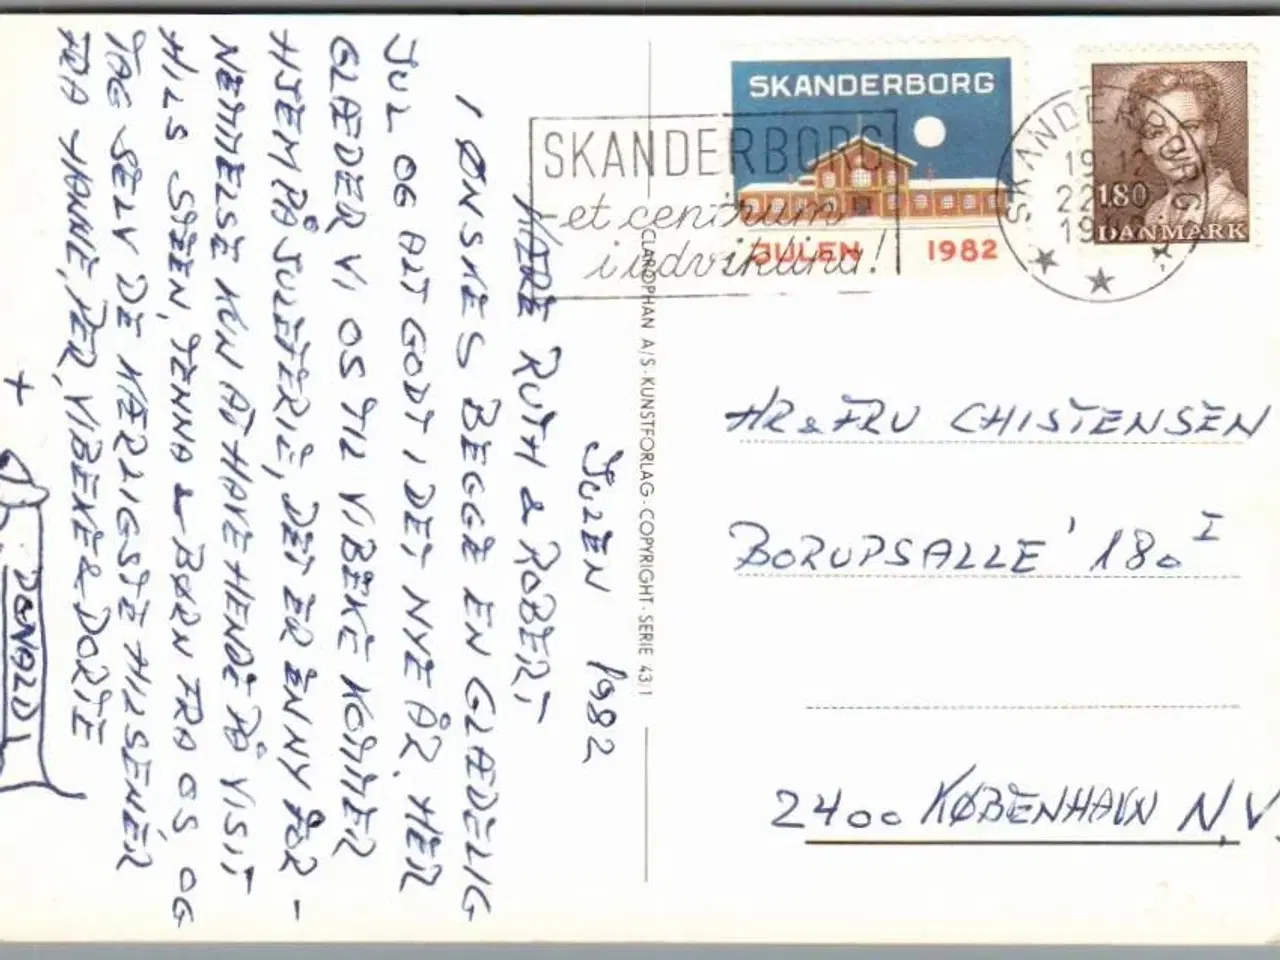 JULEN 1982
KÆRE RUTH & ROBERT
I ØNSKES BEGGE EN GLÆDELIG
JUL OG ALT GODT I DET NYE ÅR. HER
GLÆDER VI OS TIL VIBEKE KOMMER
HJEM PÅ JULEFERIE, DET ER ENNY FOR-
NEMMELSE KUN AT HAVE HENDE PÅ VISIT
HILS STEEN, JENNA & BØRN FRA OS OG
TAG SELV DE KÆRLIGSTE HILSENER
FRA HANNE, PER, VIBEKE & DORTE
+
DONALD!
CLAROPHAN A/S · KUNSTFORLAG · COPYRIGHT · SERIE 43/1
SKANDERBORG
JULEN 1982
SKANDERBORG
et centrum
i udvikling!
SKANDERBORG
19.12
22
19
1.80
DANMARK
HR & FRU CHISTENSEN
BORUPSALLE' 180 I
2400 KØBENHAVN N.V.